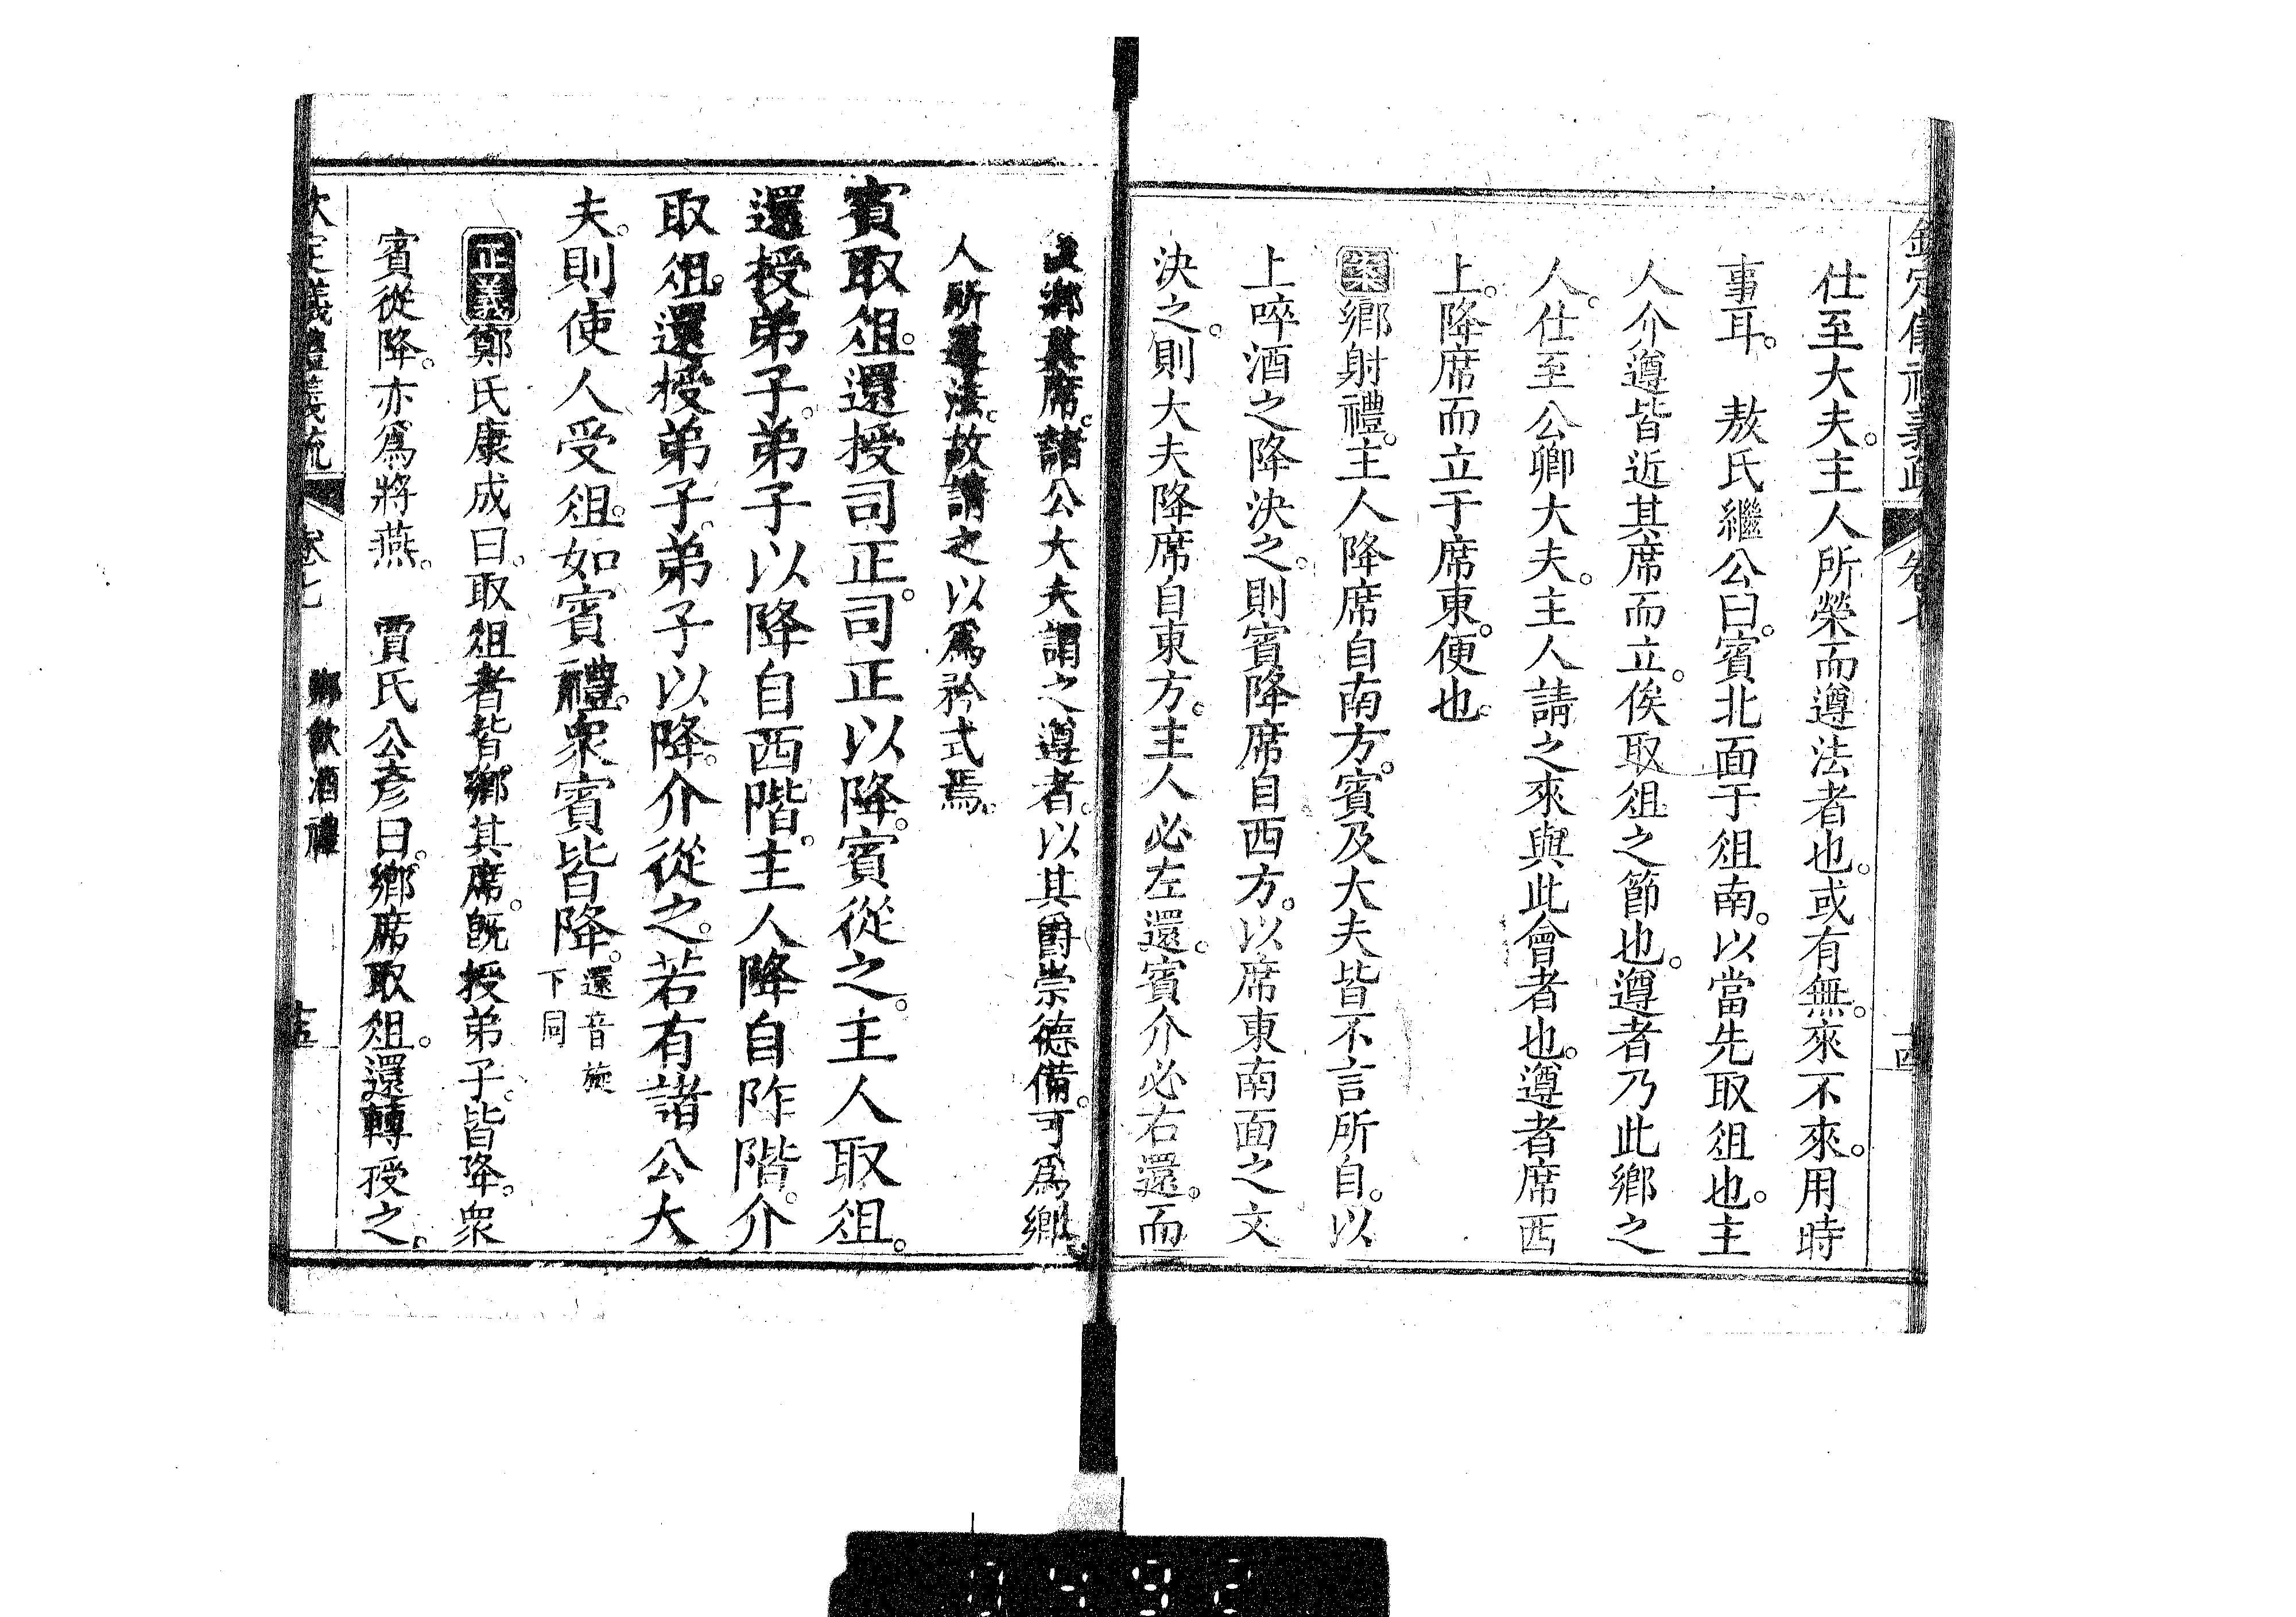 欽定儀禮義疏 卷七 十四
仕至大夫。主人所榮而遵法者也。或有無。來不來。用時
事耳。 敖氏繼公曰。賓北面于俎南。以當先取俎也。主
人介遵皆近其席而立。俟取俎之節也。遵者乃此鄉之
人。仕至公卿大夫。主人請之來與此會者也。遵者席西
上。降席而立于席東。便也。
案鄉射禮。主人降席自南方。賓及大夫皆不言所自。以
上啐酒之降決之。則賓降席自西方。以席東南面之文
決之。則大夫降席自東方。主人必左還。賓介必右還。而
鄉其席。諸公大夫謂之遵者。以其爵崇德備。可爲鄉
人所遵法。故請之以爲矜式焉。
賓取俎。還授司正。司正以降。賓從之。主人取俎。
還授弟子。弟子以降自西階。主人降自阼階。介
取俎。還授弟子。弟子以降。介從之。若有諸公大
夫。則使人受俎。如賓禮。衆賓皆降。還音旋
下同
正義鄭氏康成曰。取俎者皆鄉其席。旣授弟子。皆降。衆
賓從降。亦爲將燕。 賈氏公彥曰。鄉席取俎。還轉授之。
欽定儀禮義疏 卷七 鄉飲酒禮 十五